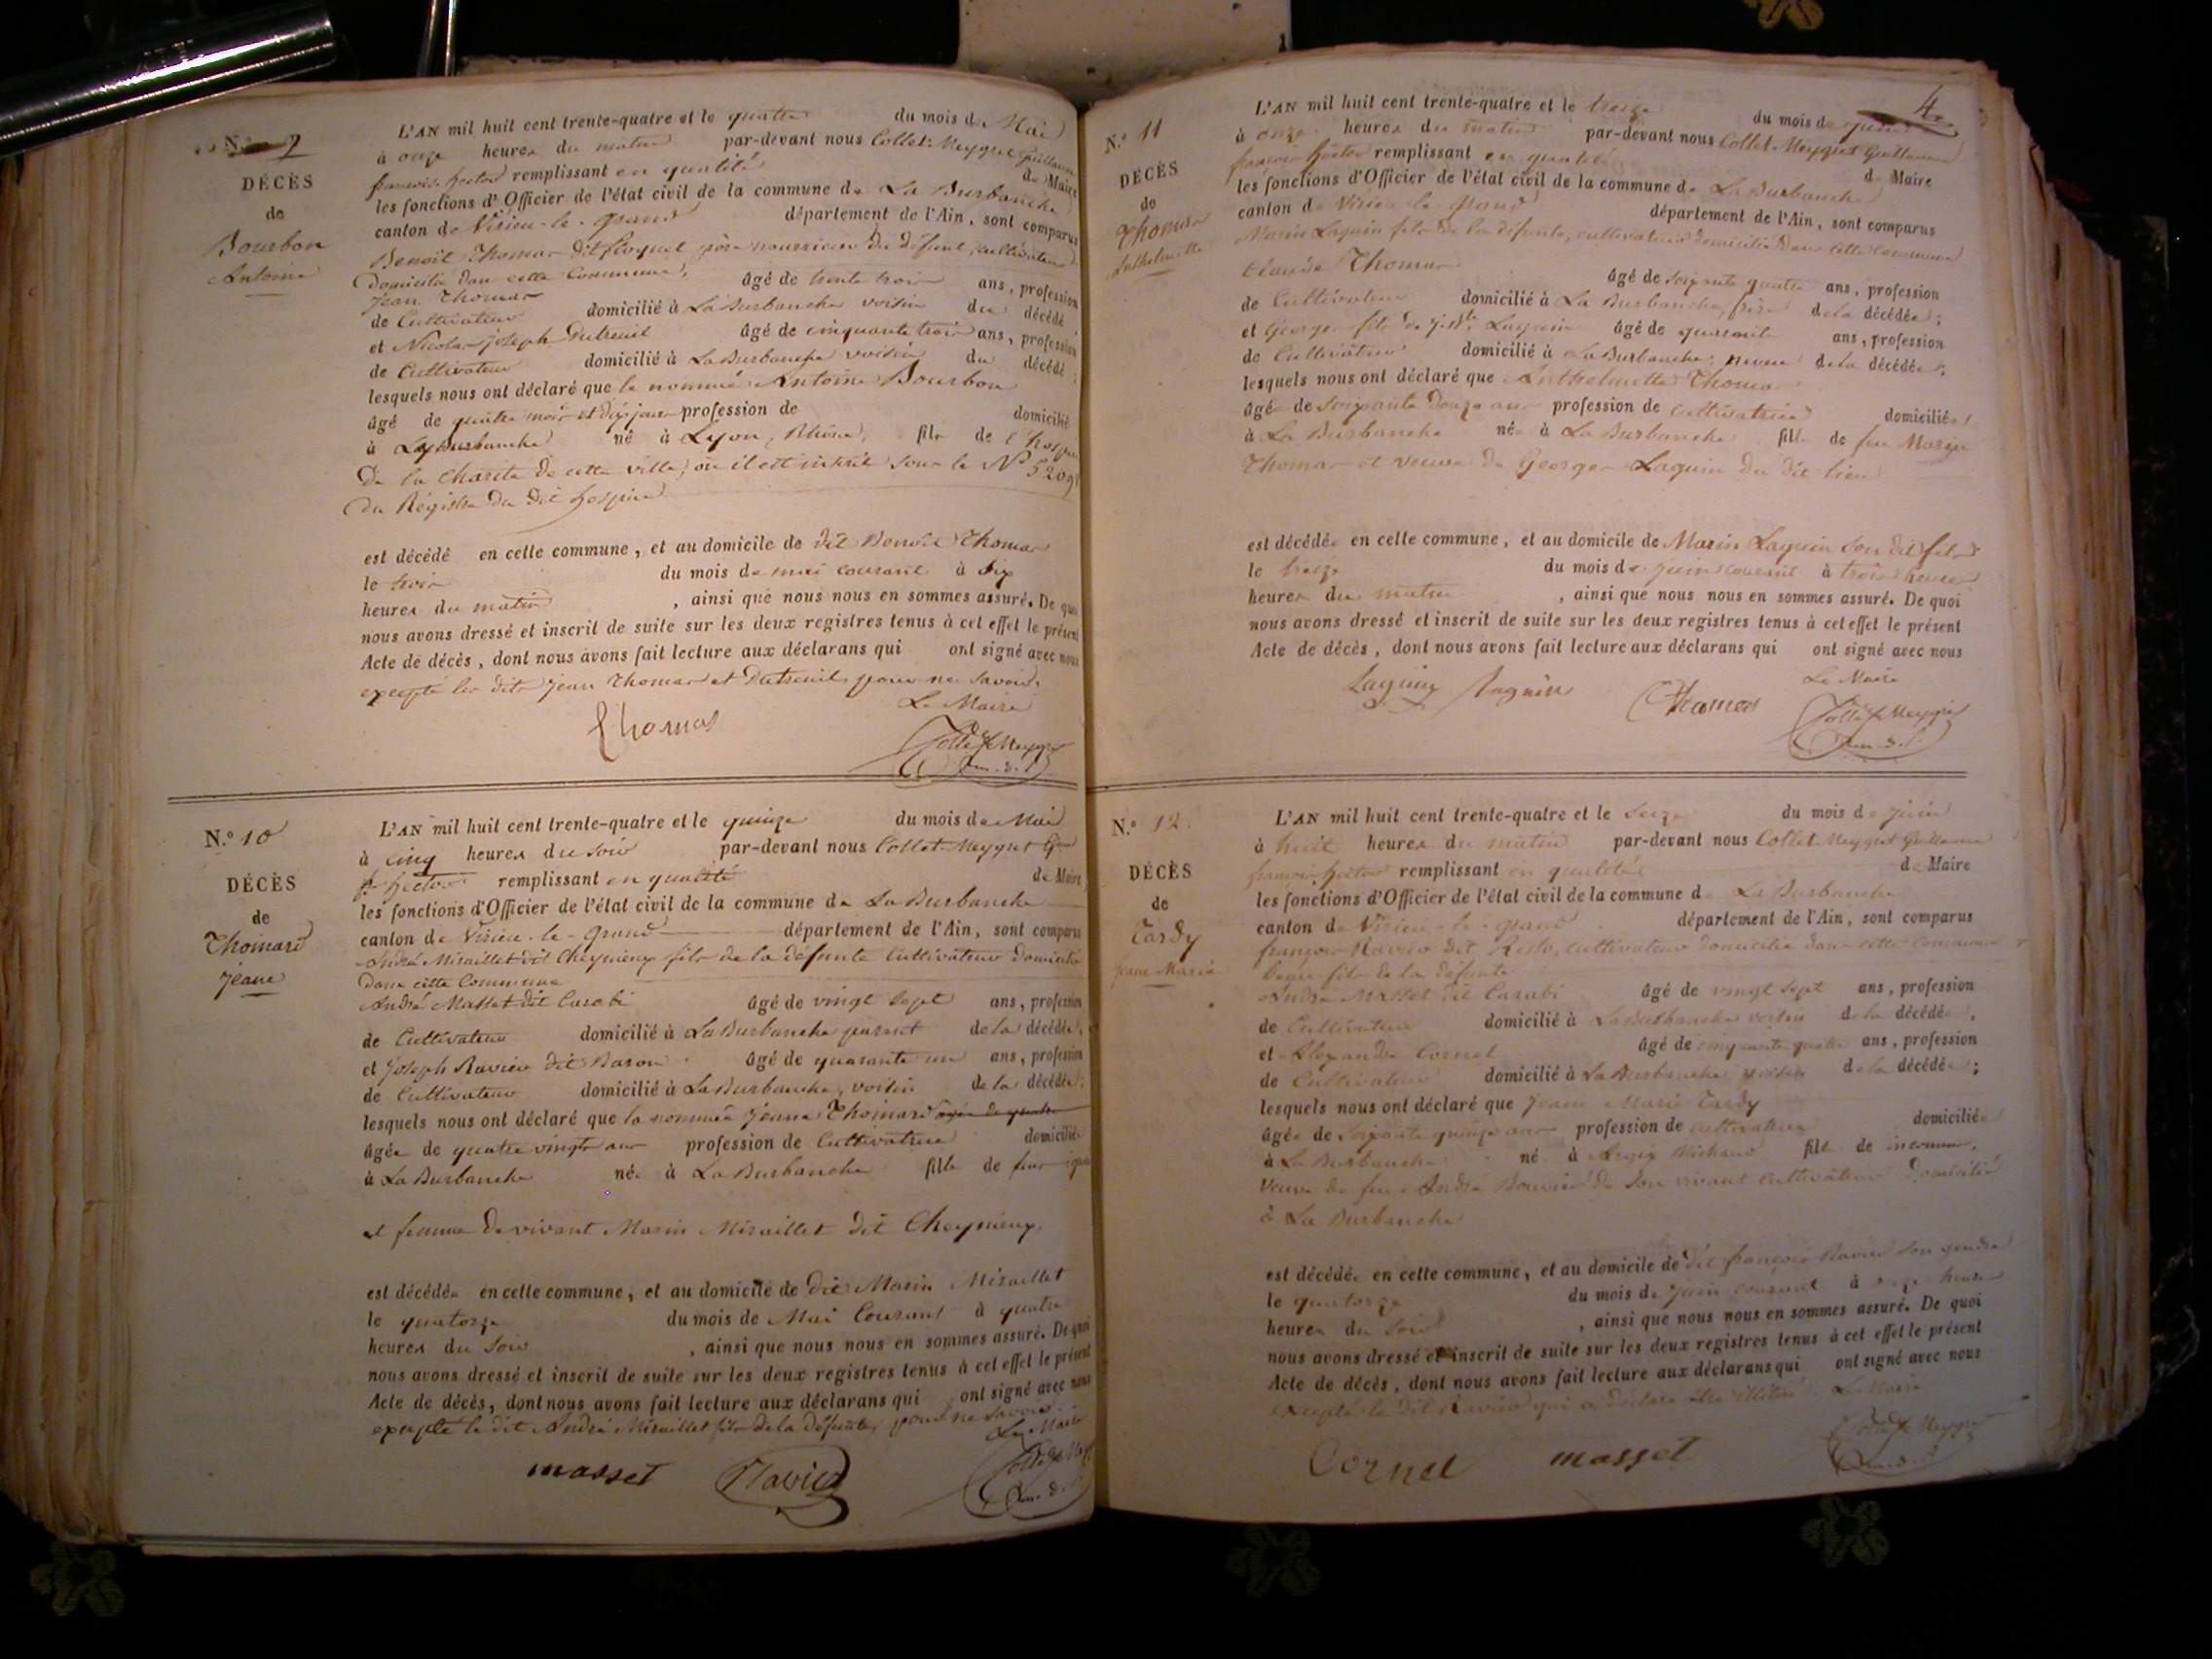 N.o 9
DÉCÈS
de
Bourbon
Antoine
L'AN mil huit cent trente-quatre et le quatre du mois de Mai
à onze heures du matin par-devant nous Collet-Meygret Guillaume
françois hector remplissant en qualité de Maire
les fonctions d'Officier de l'état civil de la commune de La Burbanche
canton de Virieu-le-grand département de l'Ain, sont comparus
Benoit Thomas dit floquet père nourricier du défunt, cultivateur
domicilié dans cette Commune,
Jean Thomas âgé de trente trois ans, profession
de Cultivateur domicilié à La Burbanche voisin du décédé
et Nicolas joseph Dutreuil âgé de cinquante trois ans, profession
de Cultivateur domicilié à La Burbanche voisin du décédé ;
lesquels nous ont déclaré que le nommé Antoine Bourbon
âgé de quatre mois et dix jours profession de domicilié
à La Burbanche né à Lyon, Rhône, fils de l'hospice
De la Charité de cette ville, où il est inscrit sous le No
du Régistre du dit hospice
est décédé en cette commune, et au domicile de dit Benoit Thomas
le trois du mois de mai courant à six
heures du matin, ainsi que nous nous en sommes assuré. De quoi
nous avons dressé et inscrit de suite sur les deux registres tenus à cet effet le présent
Acte de décès, dont nous avons fait lecture aux déclarans qui ont signé avec nous
excepté les dits jean Thomas et Dutreuil, pour ne savoir.
Le Maire
Thomas
Collet Meygret
N.o 10
DÉCÈS
de
Thomard
Jeane
L'AN mil huit cent trente-quatre et le quinze du mois de Mai
à cinq heures du soir par-devant nous Collet-Meygret Gme
fs hector remplissant en qualité de Maire
les fonctions d'Officier de l'état civil de la commune de La Burbanche
canton de Virieu-le-grand département de l'Ain, sont comparus
André Miraillet dit Cheynieux fils de la défunte Cultivateur domicilié
Dans cette Commune
André Masset dit Carabi âgé de vingt sept ans, profession
de Cultivateur domicilié à La Burbanche parent de la décédée,
et Joseph Ravier dit Baron âgé de quarante un ans, profession
de Cultivateur domicilié à La Burbanche, voisin de la décédée ;
lesquels nous ont déclaré que la nommée Jeane Thomard agée de quatre
âgée de quatre vingts ans profession de Cultivatrice domiciliée
à La Burbanche née à La Burbanche fille de feu
et femme de vivant Marin Miraillet dit Cheynieux,
est décédée en cette commune, et au domicile de dit Marin Miraillet
le quatorze du mois de Mai Courant à quatre
heures du soir, ainsi que nous nous en sommes assuré. De quoi
nous avons dressé et inscrit de suite sur les deux registres tenus à cet effet le présent
Acte de décès, dont nous avons fait lecture aux déclarans qui ont signé avec nous
excepté le dit André Miraillet fils de la défunte, pour ne savoir.
Le Maire
masset Ravier
Collet Meygret
4
N.o 11
DÉCÈS
de
Thomas
Anthelmette
L'AN mil huit cent trente-quatre et le treize du mois de Juin
à onze heures du matin par-devant nous Collet-Meygret Guillaume
françois hector remplissant en qualité de Maire
les fonctions d'Officier de l'état civil de la commune de La Burbanche
canton de Virieu-le-grand département de l'Ain, sont comparus
Marin Laguin fils de la défunte, cultivateur domicilié dans cette Commune
Claude Thomas âgé de soixante quatre ans, profession
de Cultivateur domicilié à La Burbanche, frère de la décédée ;
et George fils de Laguin âgé de quarante ans, profession
de Cultivateur domicilié à La Burbanche, neveu de la décédée ;
lesquels nous ont déclaré que Anthelmette Thomas
âgée de soixante douze ans profession de cultivatrice domiciliée
à La Burbanche née à La Burbanche fille de feu Marin
Thomas et veuve de George Laguin du dit lieu
est décédée en cette commune, et au domicile de Marin Laguin son dit fils
le treize du mois de juin courant à trois heures
heures du matin, ainsi que nous nous en sommes assuré. De quoi
nous avons dressé et inscrit de suite sur les deux registres tenus à cet effet le présent
Acte de décès, dont nous avons fait lecture aux déclarans qui ont signé avec nous
Le Maire
Laguin Laguin Thomas
Collet Meygret
N.o 12.
DÉCÈS
de
Tardy
Jeane Marie
L'AN mil huit cent trente-quatre et le seize du mois de juin
à huit heures du matin par-devant nous Collet-Meygret Guillaume
françois hector remplissant en qualité de Maire
les fonctions d'Officier de l'état civil de la commune de La Burbanche
canton de Virieu-le-grand département de l'Ain, sont comparus
françois Ravier dit cultivateur domicilié dans cette Commune
beau fils de la défunte
André Masset dit Carabi âgé de vingt sept ans, profession
de Cultivateur domicilié à La Burbanche voisin de la décédée,
et Alexandre Cornel âgé de cinquante quatre ans, profession
de Cultivateur domicilié à La Burbanche voisin de la décédée ;
lesquels nous ont déclaré que Jeane Marie Tardy
âgée de soixante quinze ans profession de cultivatrice domiciliée
à La Burbanche né à fille de inconnu,
Veuve de feu André Bouvier de son vivant Cultivateur Domicilié
à La Burbanche
est décédée en cette commune, et au domicile de dit françois Ravier son gendre
le quatorze du mois de juin courant à heures
heures du soir, ainsi que nous nous en sommes assuré. De quoi
nous avons dressé et inscrit de suite sur les deux registres tenus à cet effet le présent
Acte de décès, dont nous avons fait lecture aux déclarans qui ont signé avec nous
excepté le dit Ravier qui a déclaré être illétré. Le Maire
Cornel masset
Collet Meygret